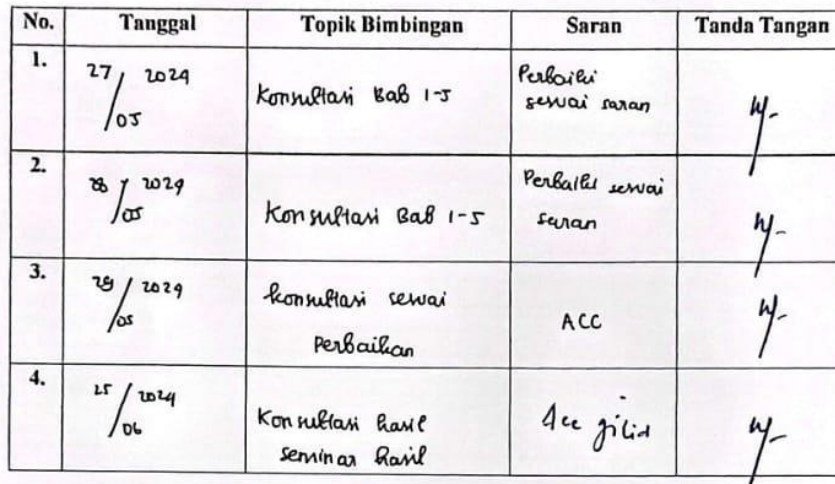 No. Tanggal Topik Bimbingan Saran Tanda Tangan
1. 27/05 2024 Konsultasi Bab 1-5 Perbaiki sesuai saran
2. 28/05 2024 Konsultasi Bab 1-5 Perbaiki sesuai saran
3. 29/05 2024 konsultasi sesuai Perbaikan ACC
4. 25/06 2024 Konsultasi hasil seminar hasil Acc jilid